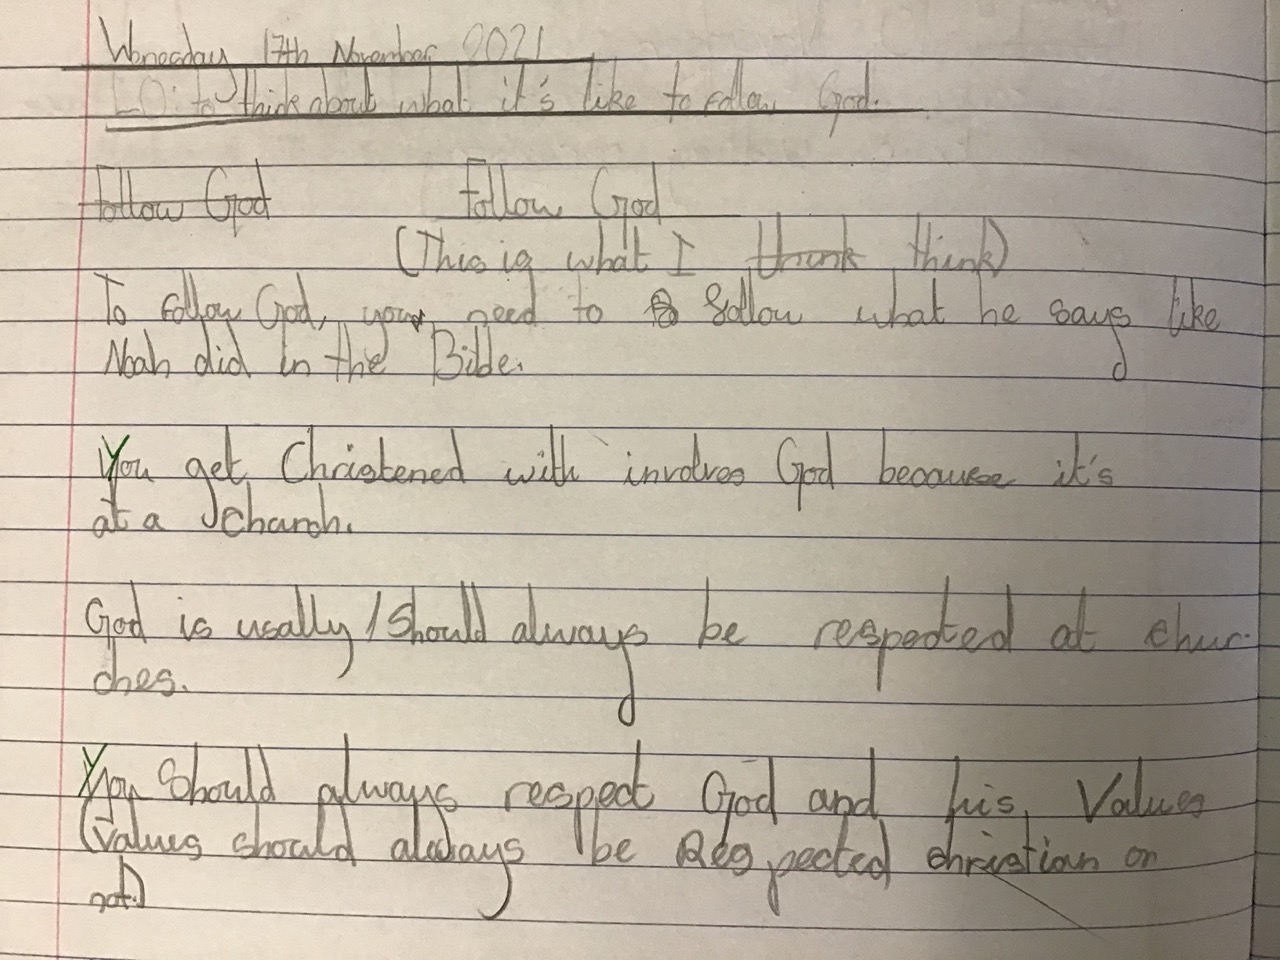 Wenesday 17th November 2021
LO: to think about what it's like to follow God.
Follow God Follow God
(This is what I thunk think)
To follow God, you need to follow what he says like
Noah did in the Bible.
You get Christened with involves God because it's
at a church.
God is usally/should always be respected at chur-
ches.
You should always respect God and his Values
(values should always be Respected christian or
not.)